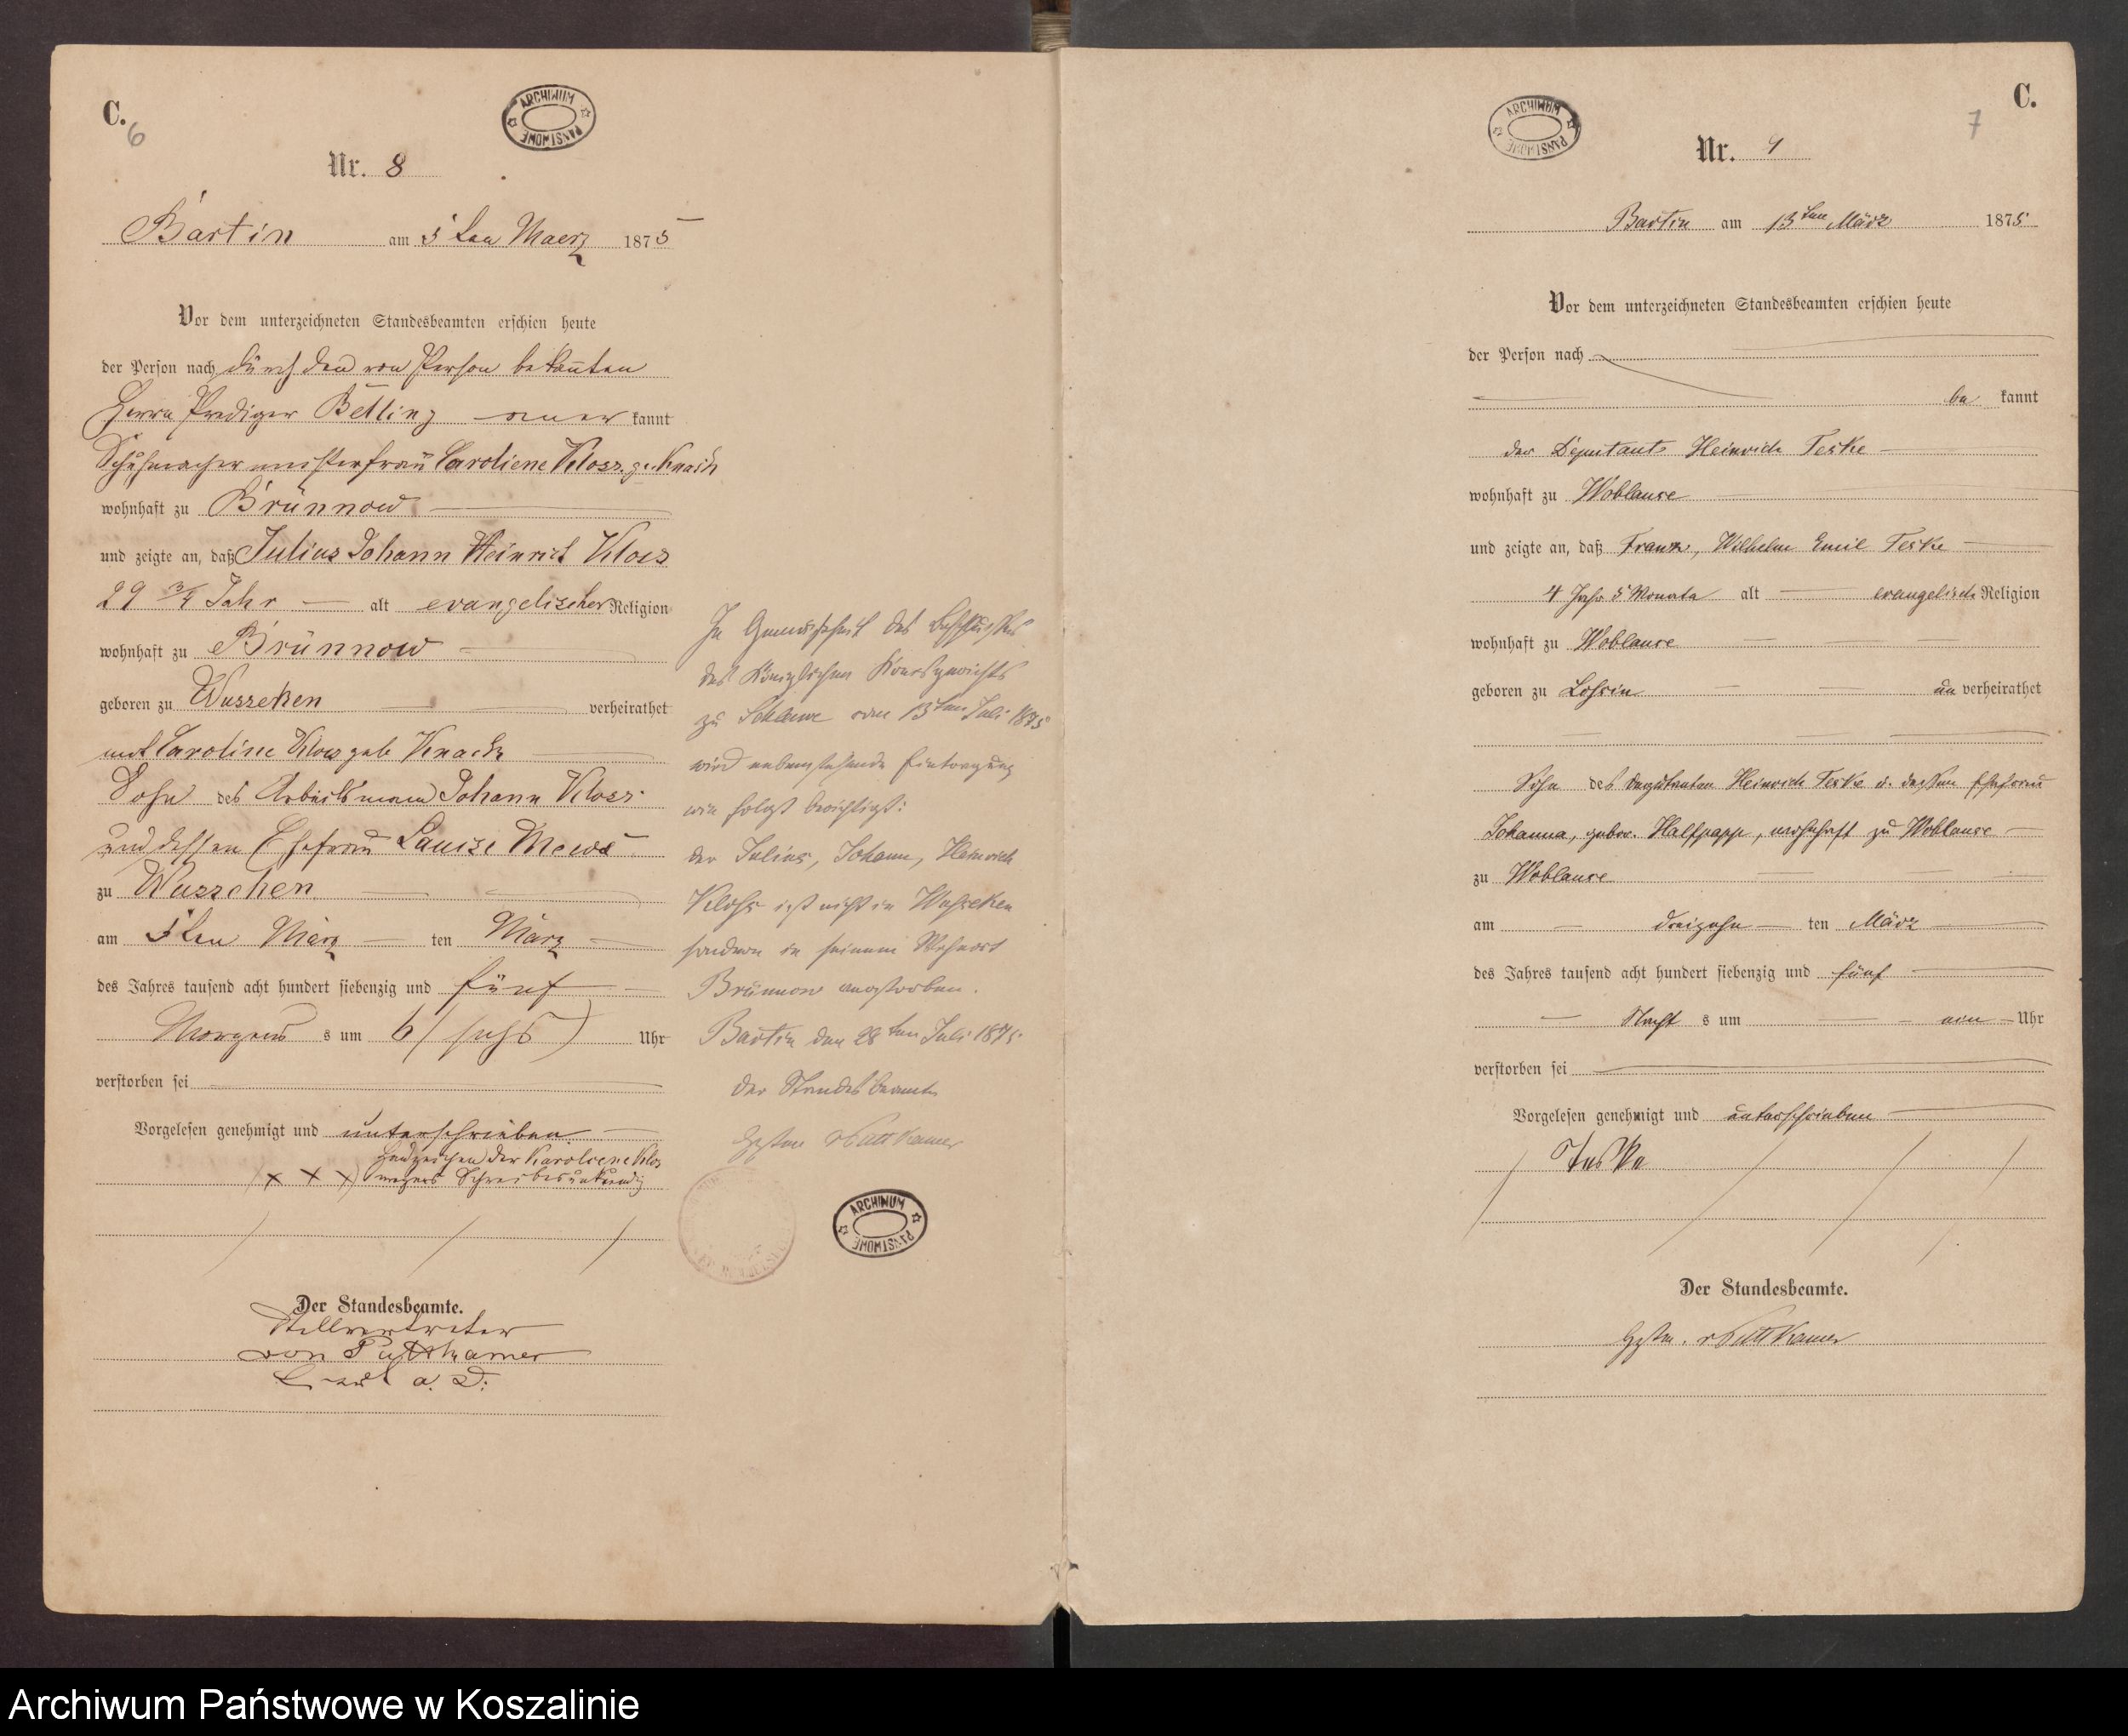 C.
6
ARCHIWUM PAŃSTWOWE
Nr. 8
Bartin am 5ten Maerz 1875
Vor dem unterzeichneten Standesbeamten erschien heute
der Person nach durch den von Person bekannten
Herrn Prediger Betling anerkannt
Schuhmachermeisterfrau Caroliene Kloss. g. Knack
wohnhaft zu Brünnow
und zeigte an, daß Julius Johann Heinrich Kloss
29 3/4 Jahr alt evangelischer Religion
wohnhaft zu Brünnow
geboren zu Wusseken verheirathet
mit Caroline Kloss geb Knack
Sohn des Arbeitsmann Johann Kloss
und dessen Ehefrau Louise Mews
zu Wusseken
am 5ten März ten März
des Jahres tausend acht hundert siebenzig und fünf
Morgens um 6 (sechs) Uhr
verstorben sei
Vorgelesen genehmigt und unterschrieben
Handzeichen der Karoliene Klos
(x x x) wegens Schreibensunkundig
Der Standesbeamte.
Stellvertreter
von Puttkamer
a. D.
In Gemässheit des Beschlusses
des Königlichen Kreisgerichts
zu Schlawe vom 13ten Juli 1875
wird nebenstehende Eintragung
wie folgt berichtigt:
der Julius, Johann, Heinrich
Kloss ist nicht in Wusseken
sondern in seinem Wohnort
Brünnow verstorben.
Bartin den 28ten Juli 1875.
Der Standesbeamte
vPuttkamer
ARCHIWUM PAŃSTWOWE
C.
7
ARCHIWUM PAŃSTWOWE
Nr. 9
Bartin am 13ten März 1875
Vor dem unterzeichneten Standesbeamten erschien heute
der Person nach
bekannt
der Deputant Heinrich Teske
wohnhaft zu Woblanse
und zeigte an, daß Franz, Wilhelm Emil Teske
4 Jahr 5 Monate alt evangelisch Religion
wohnhaft zu Woblanse
geboren zu Lossin unverheirathet
Sohn des Deputanten Heinrich Teske u. dessen Ehefrau
Johanna, gebor. Halfpapp, wohnhaft zu Woblanse
zu Woblanse
am dreizehn ten März
des Jahres tausend acht hundert siebenzig und fünf
Nachts um ein Uhr
verstorben sei
Vorgelesen genehmigt und unterschrieben
Teske
Der Standesbeamte.
vPuttkamer
Archiwum Państwowe w Koszalinie